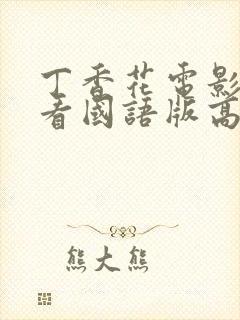 丁香花電影
看國語版高
熊大熊